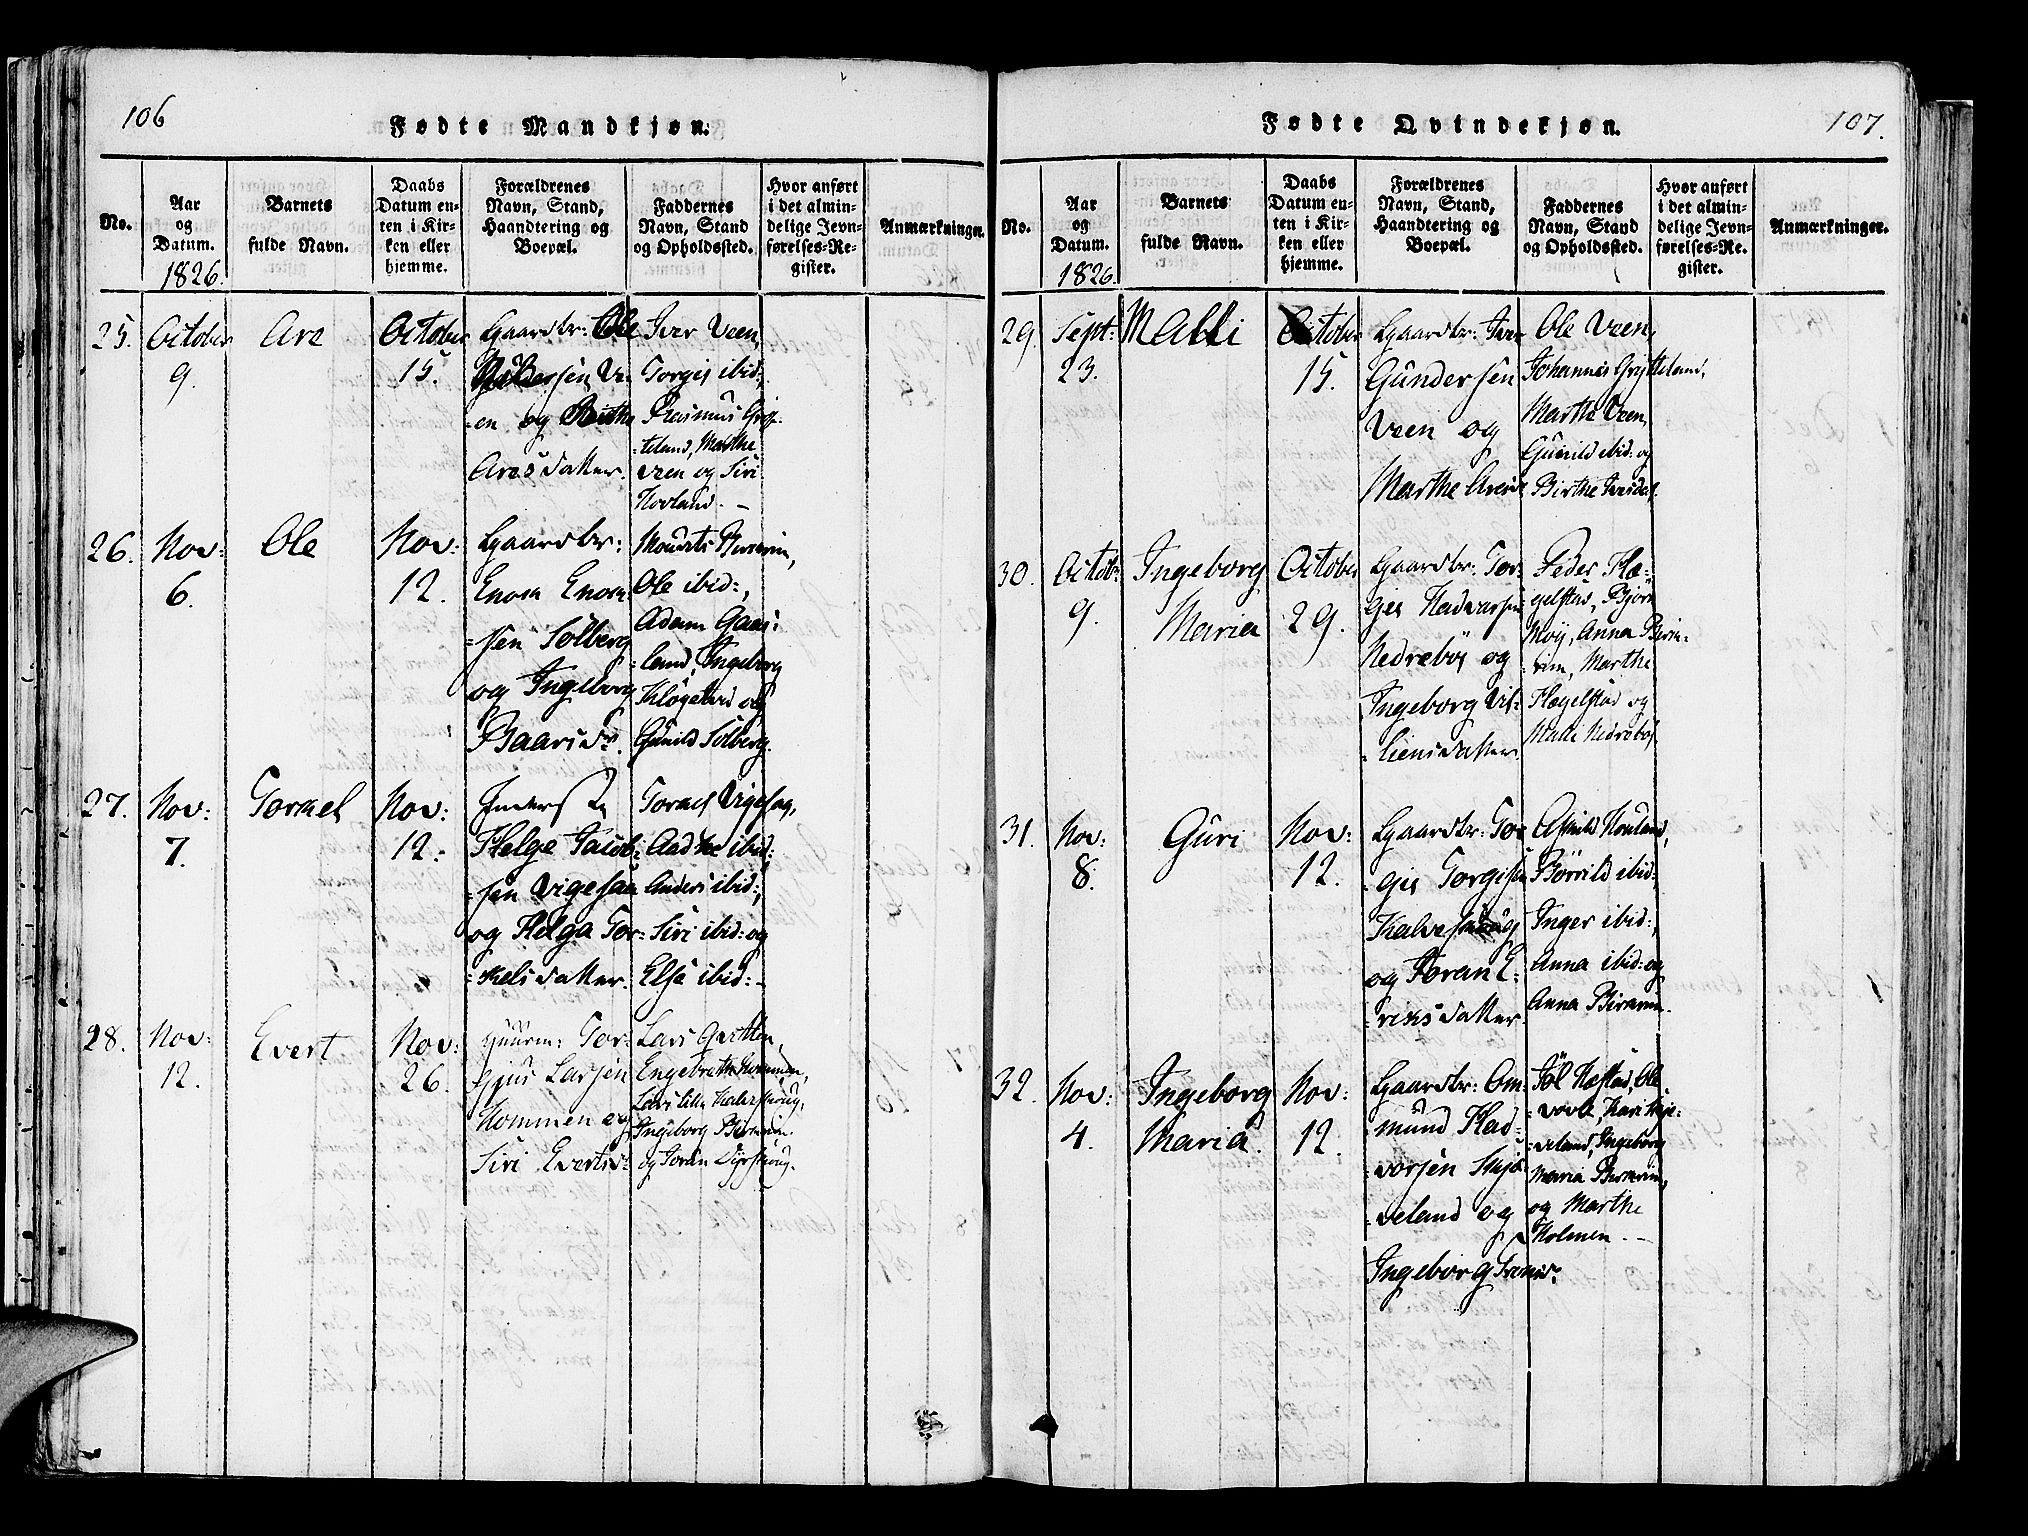 106
Fødte Mandkjøn.
No.
Aar
og
Datum.
1826.
Barnets
fulde Navn.
Daabs
Datum en-
ten i Kir-
ken eller
hjemme.
Forældrenes
Navn, Stand,
Haandtering og
Boepæl.
Faddernes
Navn, Stand
og Opholdssted.
Hvor anført
i det almin-
delige Jevn-
førelses-Re-
gister.
Anmærkninger.
25.
October
9.
Are
October
15.
Gaardbr: Ole
sen Ve-
en og Birthe
Aresdatter.
Iver Veen,
Torgis ibid:,
Rasmus Gryt-
teland, Marthe
Veen og Siri
Hovland. —
26.
Nov:
6.
Ole
Nov:
12.
Gaardbr:
Enoch Enoch
=sen Solberg
og Ingeborg
Baardsdr.
Ole ibid:,
Adam Gaas=
=land, Ingeborg
og
Gunild Solberg.
27.
Nov:
7.
Tormel
Nov:
12.
Helge Jacob=
=sen Vigesaa
og Helga Tor=
=kelsdatter.
Vigesaa,
Aadne ibid:,
Anders ibid:,
Siri ibid: og
Else ibid: —
28.
Nov:
12.
Evert
Nov:
26.
Huusm: Tor
=gius Larsen
Hommen og
Siri Evertsd:
Lars
Engebreth Hommen,
Lars Kalveskoug,
Ingeborg Bierem
og Toran
107.
Fødte Qvindekjøn.
No.
Aar
og
Datum.
1826.
Barnets
fulde Navn.
Daabs
Datum en-
ten i Kir-
ken eller
hjemme.
Forældrenes
Navn, Stand,
Haandtering og
Boepæl.
Faddernes
Navn, Stand
og Opholdssted.
Hvor anført
i det almin-
delige Jevn-
førelses-Re-
gister.
Anmærkninger.
29.
Sept:
23.
Malli
October
15.
Gaardbr: Iver
Gundersen
Veen og
Marthe Aresd:
Ole Veen,
Johannes Grytteland,
Marthe Veen,
Gunild ibid: og
Birthe Iversdal.
30.
Octobr:
9.
Ingeborg
Maria
October
29.
Gaardbr: Tor=
gies Hadvarsen
Nedrebøe og
Ingeborg Vil=
=liensdatter
Peder Hæ=
gelstad, Bjørn
Moy, Anna Birk=
=rem, Marthe
Hægelstad og
Malli Nedrebø.
31.
Nov:
8.
Guri
Nov:
12.
Gaardbr: Tor
=gis Torgisen
Kalveskoug
og Toran E=
=riksdatter
Asnild Hovland,
Børild ibid:,
Inger ibid:,
Anna ibid: og
Anna Birkrem.
32.
Nov:
4.
Ingeborg
Maria.
Nov:
12.
Gaardbr: Om
=mund Had=
=vorsen Skjæ
=veland og
Ingeborg
Ole
Kari Skjæ=
=veland, Ingeborg
Maria Birkrem,
og Marthe
Holmen. —